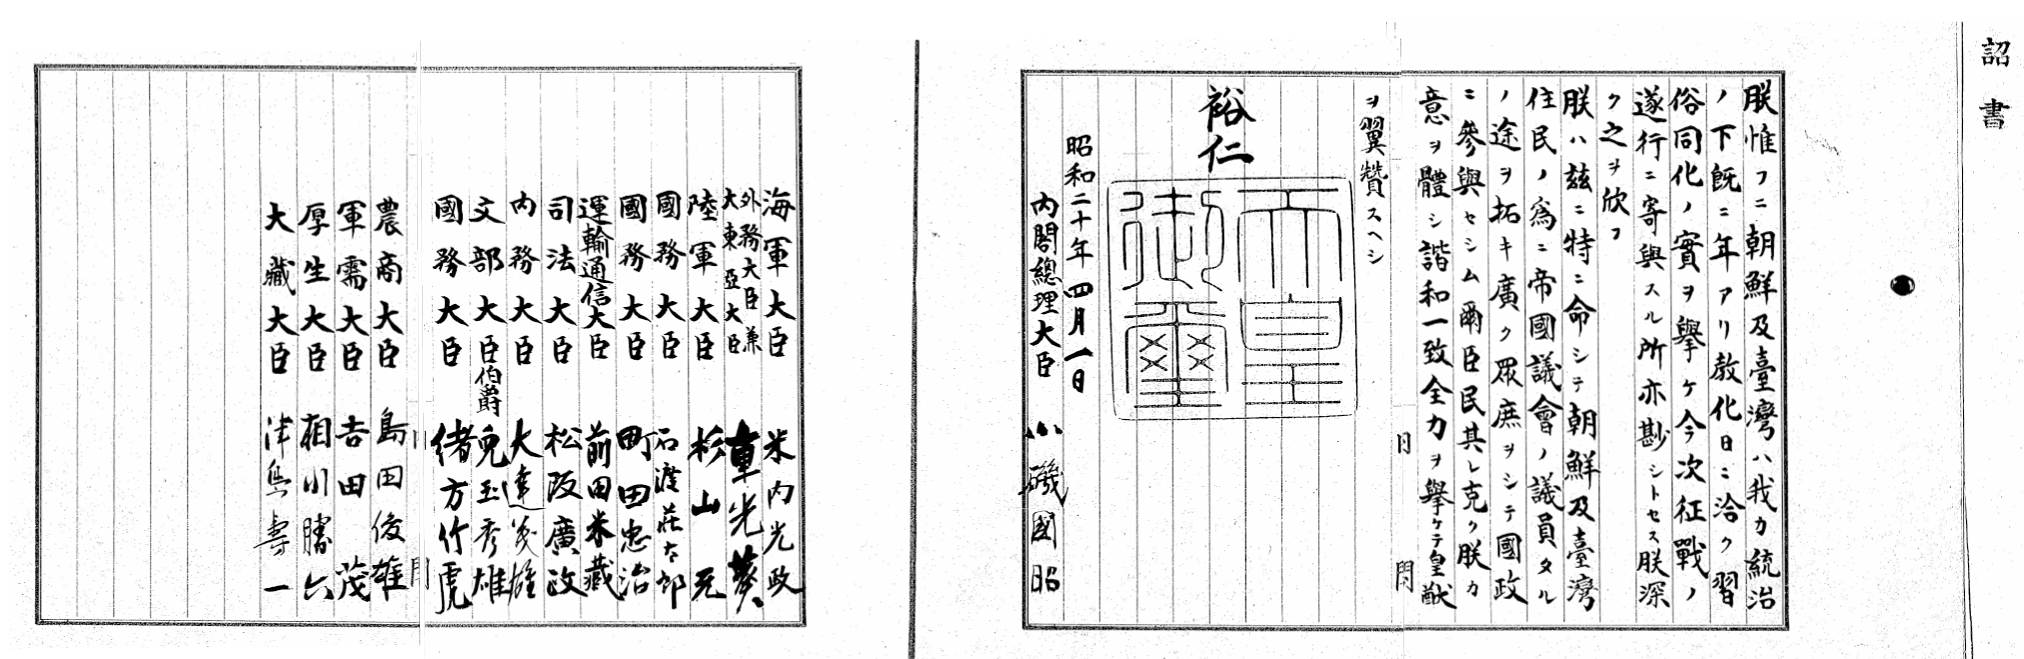 詔書
朕惟フニ朝鮮及臺灣ハ我カ統治
ノ下既ニ年アリ教化日ニ洽ク習
俗同化ノ實ヲ擧ケ今次征戰ノ
遂行ニ寄與スル所亦尠シトセス朕深
ク之ヲ欣フ
朕ハ茲ニ特ニ命シテ朝鮮及臺灣
住民ノ爲ニ帝國議會ノ議員タル
ノ途ヲ拓キ廣ク眾庶ヲシテ國政
ニ參與セシム爾臣民其レ克ク朕カ
意ヲ體シ諧和一致全力ヲ擧ケテ皇猷
ヲ翼贊スヘシ
裕仁
天皇
御璽
昭和二十年四月一日
內閣總理大臣 小磯國昭
海軍大臣 米內光政
外務大臣兼
大東亞大臣 重光葵
陸軍大臣 杉山元
國務大臣 石渡莊太郎
國務大臣 町田忠治
運輸通信大臣 前田米藏
司法大臣 松阪廣政
內務大臣 大達茂雄
文部大臣伯爵 兒玉秀雄
國務大臣 緒方竹虎
農商大臣 島田俊雄
軍需大臣 吉田茂
厚生大臣 相川勝六
大藏大臣 津島壽一